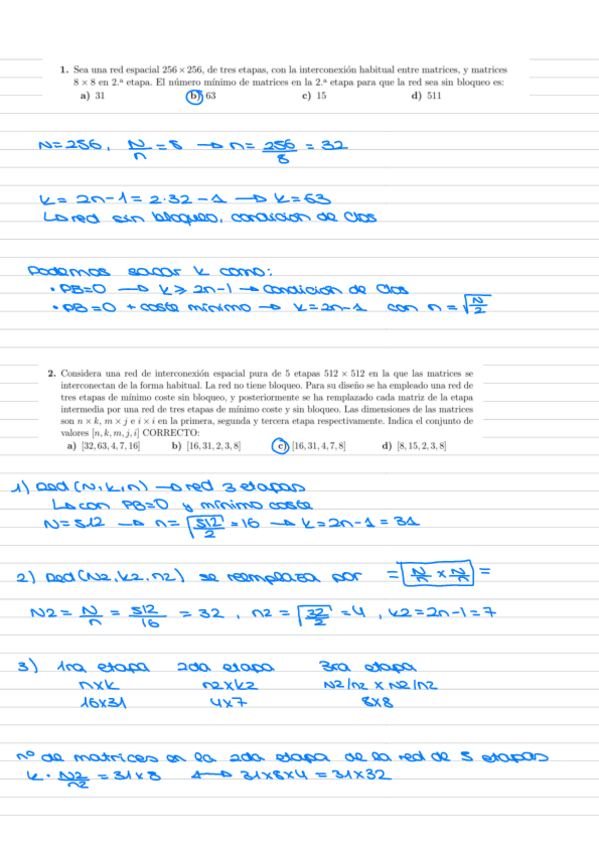 1. Sea una red espacial 256 × 256, de tres etapas, con la interconexión habitual entre matrices, y matrices
8 × 8 en 2.ª etapa. El número mínimo de matrices en la 2.ª etapa para que la red sea sin bloqueo es:
a) 31 b) 63 c) 15 d) 511
N=256, N/n = 8 → n = 256/8 = 32
k = 2n-1 = 2·32 - 1 → k=63
↳ red sin bloqueo, condicion de Clos
Podemos sacar k como:
• PB=0 → k ≥ 2n-1 → condición de Clos
• PB=0 + coste mínimo → k=2n-1 con n = √(N/2)
2. Considera una red de interconexión espacial pura de 5 etapas 512 × 512 en la que las matrices se
interconectan de la forma habitual. La red no tiene bloqueo. Para su diseño se ha empleado una red de
tres etapas de mínimo coste sin bloqueo, y posteriormente se ha remplazado cada matriz de la etapa
intermedia por una red de tres etapas de mínimo coste y sin bloqueo. Las dimensiones de las matrices
son n × k, m × j e i × i en la primera, segunda y tercera etapa respectivamente. Indica el conjunto de
valores [n, k, m, j, i] CORRECTO:
a) [32, 63, 4, 7, 16] b) [16, 31, 2, 3, 8] c) [16, 31, 4, 7, 8] d) [8, 15, 2, 3, 8]
1) Red (N, k, n) → red 3 etapas
↳ con PB=0 y mínimo coste
N=512 → n = √(512/2) = 16 → k=2n-1 = 31
2) Red (N2, k2, n2) se reemplaza por = N/n × N/n =
N2 = N/n = 512/16 = 32, n2 = √(32/2) = 4, k2=2n-1=7
3) 1ra etapa 2da etapa 3ra etapa
n×k n2×k2 N2/n2 × N2/n2
16×31 4×7 8×8
nº de matrices en la 2da etapa de la red de 5 etapas
k · N2/n2 = 31×8 31×8×4 = 31×32